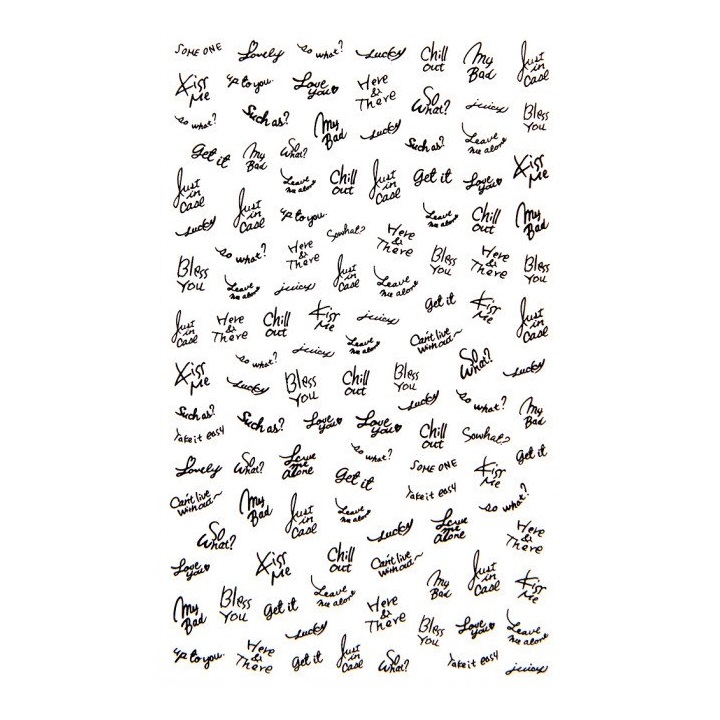 SOME ONE Lovely so what? Lucky Chill out My Bad Just in Case
Kiss Me up to you. Love you♥ Here & There So What? juicy Bless You
so what? Such as? My Bad Lucky Such as? Leave me alone
Get it My Bad So What? Leave me alone Chill out Just in Case Get it Love you♥ Kiss Me
Just in Case Lucky Just in Case up to you. Sowhat? Here & There Leave me alone Chill out My Bad
Bless You so what? Here & There Just in Case Leave me alone Bless You Here & There Bless You
Leave me alone juicy Get it Kiss Me Just in Case
Just in Case Here & There Chill out Kiss Me juicy Leave me alone Can't live without~ So What? Lucky
Kiss Me so what? juicy Lucky Bless You Chill out Bless You Lucky so what? My Bad
Such as? Such as? Love you♥ Love you♥ Chill out Sowhat? Get it
Take it easy
Lovely So What? Leave me alone so what? Get it SOME ONE Kiss Me
Take it easy so what?
Can't live without~ My Bad Just in Case Leave me alone Lucky Leave me alone Here & There
So What? Kiss Me Chill out Can't live without~ Just in Case
Love you♥ My Bad Kiss Me
My Bad Bless You Get it Leave me alone Here & There Bless You Love you♥ Leave me alone
Lucky
up to you. Here & There Get it Just in Case So What? Take it easy juicy